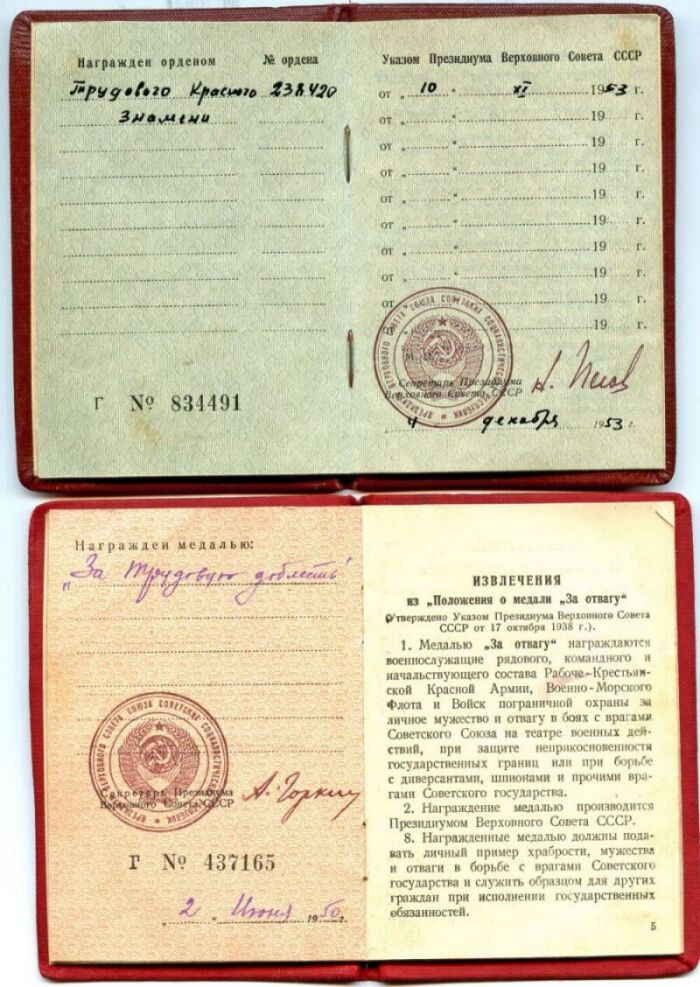 Награжден орденом № ордена
Трудового Красного 238420
Знамени
Г № 834491
Указом Президиума Верховного Совета СССР
от „ 10 “ XI 1953 г.
от „ “ 19 г.
от „ “ 19 г.
от „ “ 19 г.
от „ “ 19 г.
от „ “ 19 г.
от „ “ 19 г.
от „ “ 19 г.
от „ “ 19 г.
19 г.
ПРЕЗИДИУМ ВЕРХОВНОГО СОВЕТА СОЮЗА СОВЕТСКИХ СОЦИАЛИСТИЧЕСКИХ РЕСПУБЛИК
Секретарь Президиума
Верховного Совета СССР
4 декабря 1953 г.
Награжден медалью:
„За трудовую доблесть“
ПРЕЗИДИУМ ВЕРХОВНОГО СОВЕТА СОЮЗА СОВЕТСКИХ СОЦИАЛИСТИЧЕСКИХ РЕСПУБЛИК
Секретарь Президиума
Верховного Совета СССР А. Горкин
Г № 437165
2 Июня 1950 г.
ИЗВЛЕЧЕНИЯ
из „Положения о медали „За отвагу“
(Утверждено Указом Президиума Верховного Совета
СССР от 17 октября 1938 г.).
1. Медалью „За отвагу“ награждаются
военнослужащие рядового, командного и
начальствующего состава Рабоче-Крестьян-
ской Красной Армии, Военно-Морского
Флота и Войск пограничной охраны за
личное мужество и отвагу в боях с врагами
Советского Союза на театре военных дей-
ствий, при защите неприкосновенности
государственных границ или при борьбе
с диверсантами, шпионами и прочими вра-
гами Советского государства.
2. Награждение медалью производится
Президиумом Верховного Совета СССР.
8. Награжденные медалью должны пода-
вать личный пример храбрости, мужества
и отваги в борьбе с врагами Советского
государства и служить образцом для других
граждан при исполнении государственных
обязанностей.
5